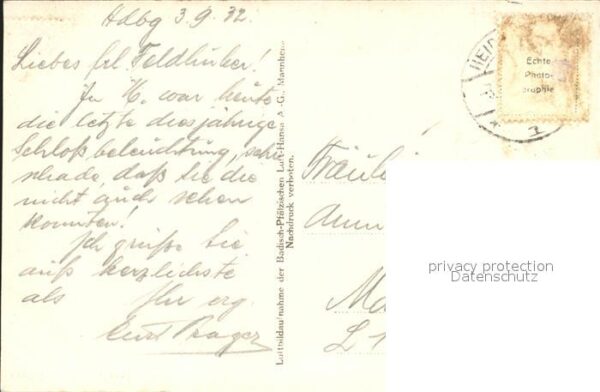 Hdbg 3.9.32.
Liebes Frl. Feldhinker!
In H. war heute
die letzte diesjährige
Schloßbeleuchtung,
schade, daß Sie die
nicht auch sehen
konnten!
Ich grüße Sie
aufs herzlichste
als Ihr erg.
Luftbildaufnahme der Badisch-Pfälzischen Luft-Hansa A.-G., Mannheim.
Nachdruck verboten.
Echte
Photo-
graphie
HEID
Fräul
Ma
L 1
privacy protection
Datenschutz